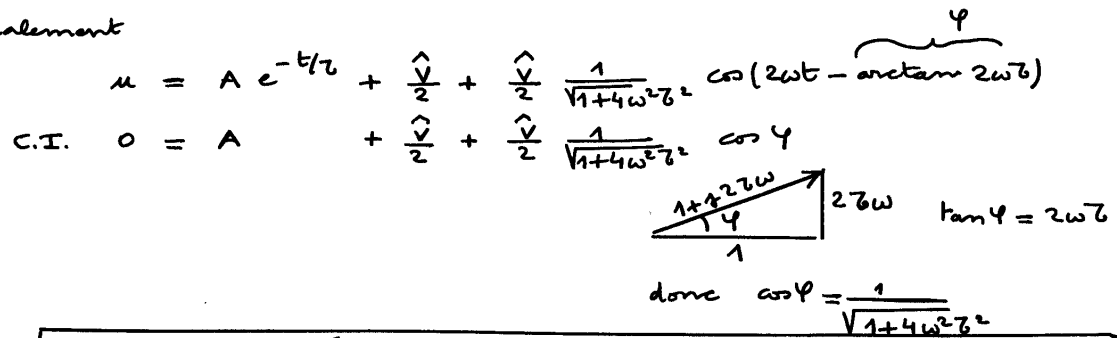 alement
φ
u = A e^{-t/τ} + V̂/2 + V̂/2 1/√(1+4ω²τ²) cos(2ωt - arctan 2ωτ)
C.I. 0 = A + V̂/2 + V̂/2 1/√(1+4ω²τ²) cos φ
1+j2τω
φ
1
2τω
tan φ = 2ωτ
donc cos φ = 1/√(1+4ω²τ²)